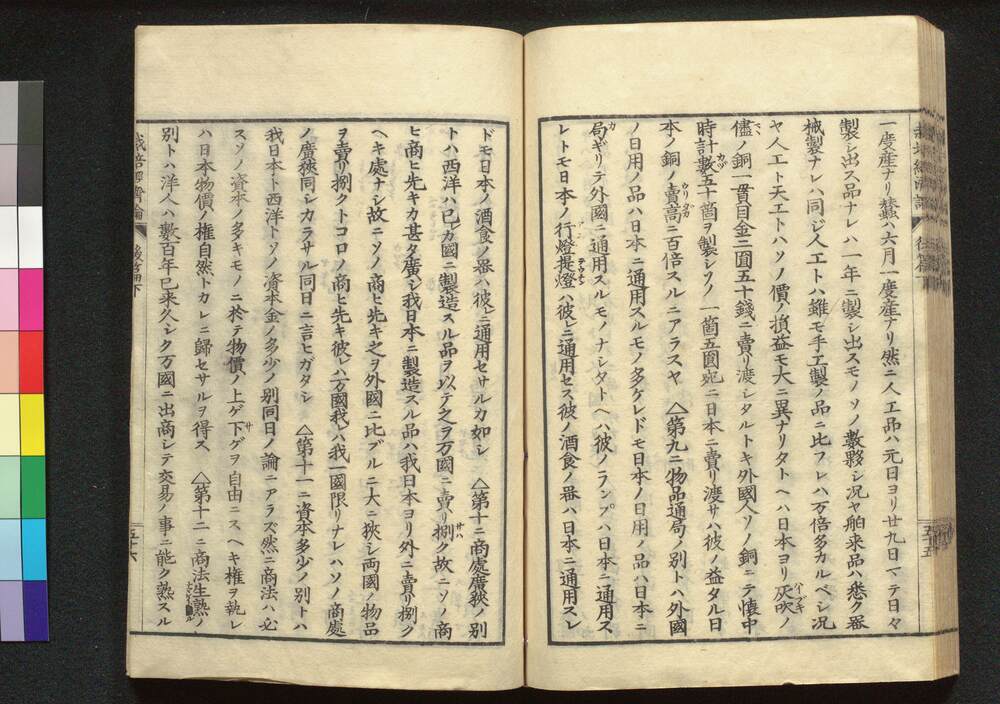 一度産ナリ蠶ハ六月一度産ナリ然ニ人工品ハ元日ヨリ廿九日マテ日々
製シ出ス品ナレハ一年ニ製シ出スモノソノ數夥シ况ヤ舶来品ハ悉ク器
械製ナレハ同ジ人工トハ雖モ手工製ノ品ニ比フレハ万倍多カルベシ况
ヤ人工ト天工トハソノ價ノ損益モ大ニ異ナリタトヘハ日本ヨリ灰吹ノ
儘ノ銅一貫目金二圓五十錢ニ賣リ渡シタルトキ外國人ソノ銅ニテ懐中
時計數五十箇ヲ製シソノ一箇五圓宛ニ日本ニ賣リ渡サハ彼ノ益タル日
本ノ銅ノ賣高ニ百倍スルニアラスヤ △第九ニ物品通局ノ別トハ外國
ノ日用ノ品ハ日本ニ通用スルモノ多ケレドモ日本ノ日用ノ品ハ日本ニ
局ギリテ外國ニ通用スルモノナシタトヘハ彼ノランプハ日本ニ通用ス
レトモ日本ノ行燈提燈ハ彼レニ通用セス彼ノ酒食ノ器ハ日本ニ通用スレ
五十五
ドモ日本ノ酒食ノ器ハ彼レニ通用セサルカ如シ △第十ニ商處廣狹ノ別
トハ西洋ハ已カ國ニ製造スル品ヲ以テ之ヲ万國ニ賣リ捌ク故ニソノ商
ヒ商ヒ先キカ甚タ廣シ我日本ニ製造スル品ハ我日本ヨリ外ニ賣リ捌ク
ヘキ處ナシ故ニソノ商ヒ先キ之ヲ外國ニ比ブルニ大ニ狹シ両國ノ物品
ヲ賣リ捌クトコロノ商ヒ先キ彼レハ万國我レハ我一國限リナレハソノ商處
ノ廣狹同シカラサル同日ニ言ヒガタシ △第十一ニ資本多少ノ別トハ
我日本ト西洋トソノ資本金ノ多少ノ別同日ノ論ニアラズ然ニ商法ハ必
スソノ資本ノ多キモノニ於テ物價ノ上ゲ下ゲヲ自由ニスヘキ權ヲ執レ
ハ日本物價ノ權自然トカレニ歸セサルヲ得ス △第十二ニ商法生熟ノ
別トハ洋人ハ數百年已来久シク万國ニ出商シテ交易ノ事ニ能ク熟スル
栽培經濟論 後篇下
五十六